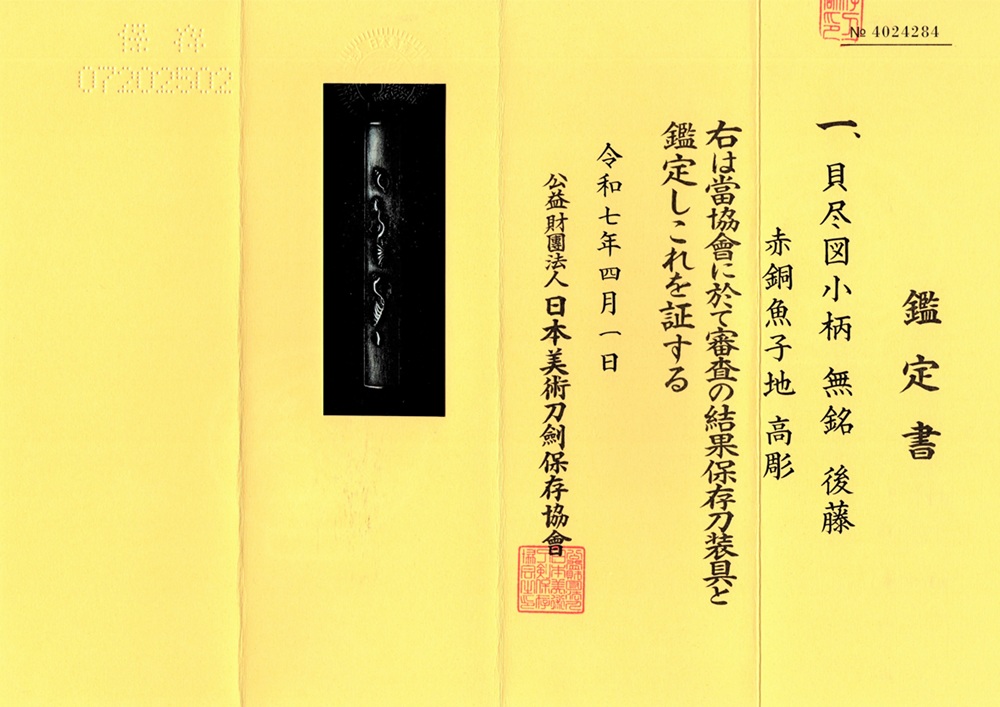 № 4024284
鑑定書
一、貝尽図小柄 無銘 後藤
赤銅魚子地 高彫
右は當協會に於て審査の結果保存刀装具と
鑑定しこれを証する
令和七年四月一日
公益財團法人 日本美術刀劍保存協會
保存
07202502